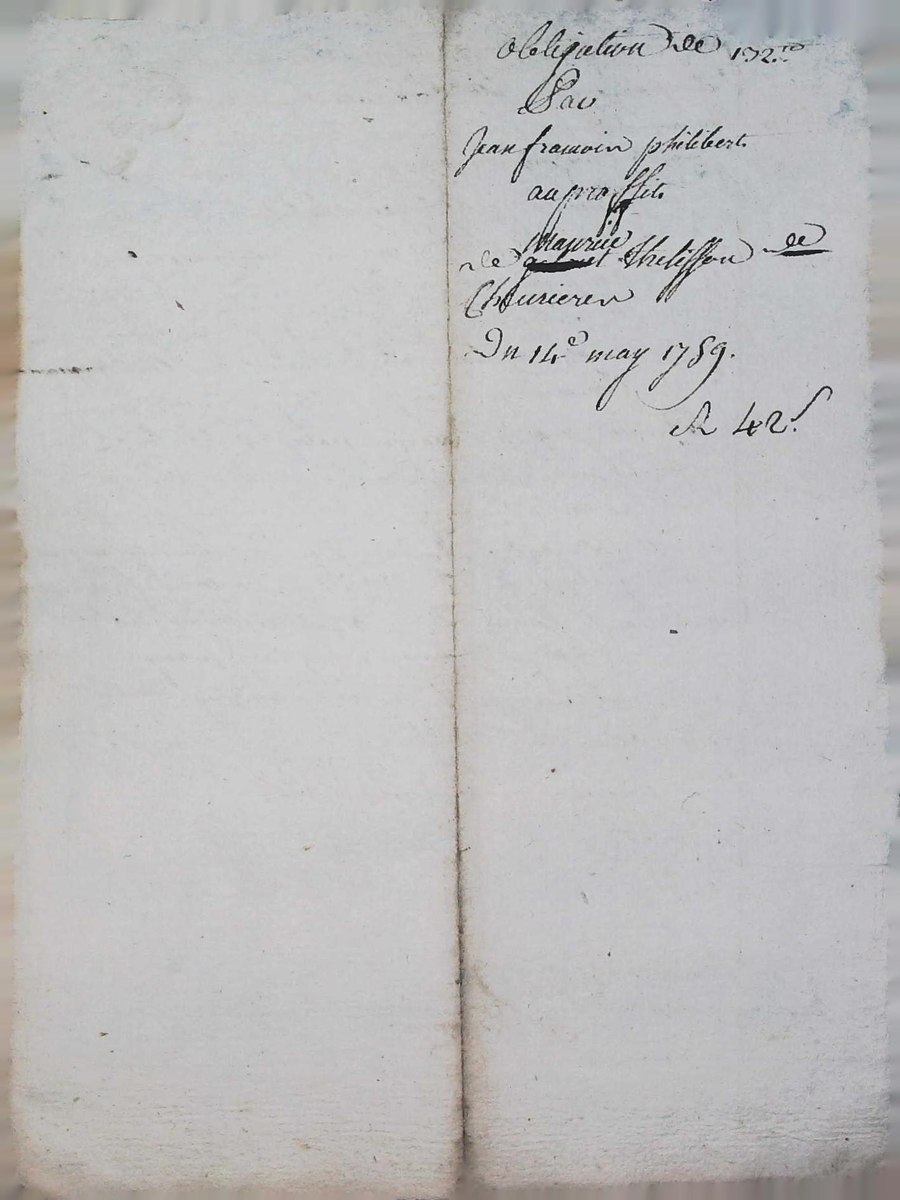 obligation de 132.ᵗᵗ
Par
Jean francois philibert
au proffit
de Maurice Thelisson de
Du 14ᵉ may 1759.
R 42ˢ